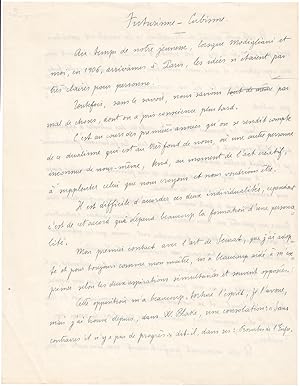 Futurisme – Cubisme.
Au temps de notre jeunesse, lorsque Modigliani et
moi, en 1906, arrivâmes à Paris, les idées n'étaient pas
très claires pour personne.
Toutefois, sans le savoir, nous savions pas
mal de choses, dont on a pris conscience plus tard.
C'est au cours des premières années que on se rendit compte
de ce dualisme qui est au très fond de nous, où une autre personne
inconnue de nous-même, tend, au moment de l'act créatif,
à supplanter celui que nous croyons et nous voudrions être.
Il est difficile d'accorder ces deux individualités, cependant
c'est de cet accord que dépend beaucoup la formation d'une persona-
lité.
Mon premier contact avec l'art de Seurat, que j'ai adop-
té et pour toujours comme mon maître, m'a beaucoup aidé à m'ex-
primer selon les deux aspirations simultanées et souvent opposées.
Cette opposition m'a beaucoup torturé l'esprit, je l'avoue,
mais j'ai trouvé depuis, dans W. Blake, une consolation: «Sans
contraires il n'y a pas de progrès» dit-il, dans ses: Proverbes de l'Enfer.